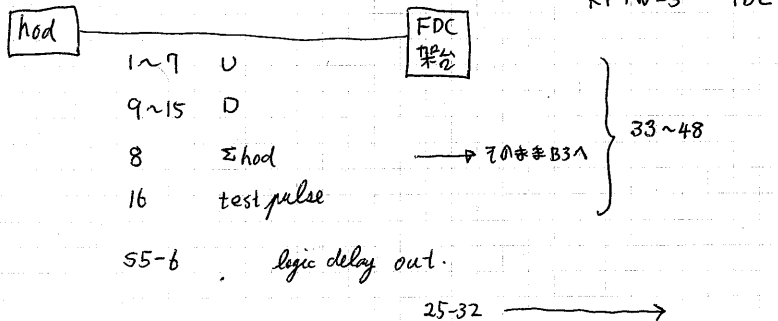 hod
FDC
架台
1~7 U
9~15 D
8 Σhod → そのままB3へ
16 test pulse
33~48
55-6 . logic delay out.
25-32 →